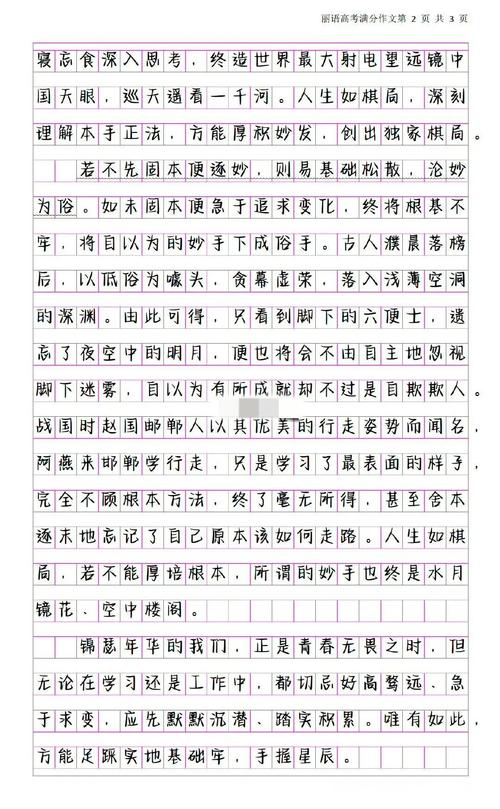 丽语高考满分作文第 2 页 共 3 页
寝忘食深入思考，终造世界最大射电望远镜中
国天眼，巡天遥看一千河。人生如棋局，深刻
理解本手正法，方能厚积妙发，创出独家棋局。
若不先固本便逐妙，则易基础松散，沦妙
为俗。如未固本便急于追求变化，终将根基不
牢，将自以为的妙手下成俗手。古人濮晨落榜
后，以低俗为噱头，贪幕虚荣，落入浅薄空洞
的深渊。由此可得，只看到脚下的六便士，遗
忘了夜空中的明月，便也将会不由自主地忽视
脚下迷雾，自以为有所成就却不过是自欺欺人。
战国时赵国邯郸人以其优美的行走姿势而闻名，
阿燕来邯郸学行走，只是学习了最表面的样子，
完全不顾根本方法，终了毫无所得，甚至舍本
逐末地忘记了自己原本该如何走路。人生如棋
局，若不能厚培根本，所谓的妙手也终是水月
镜花、空中楼阁。
锦瑟年华的我们，正是青春无畏之时，但
无论在学习还是工作中，都切忌好高骛远、急
于求变，应先默默沉潜、踏实积累。唯有如此，
方能足踩实地基础牢，手握星辰。